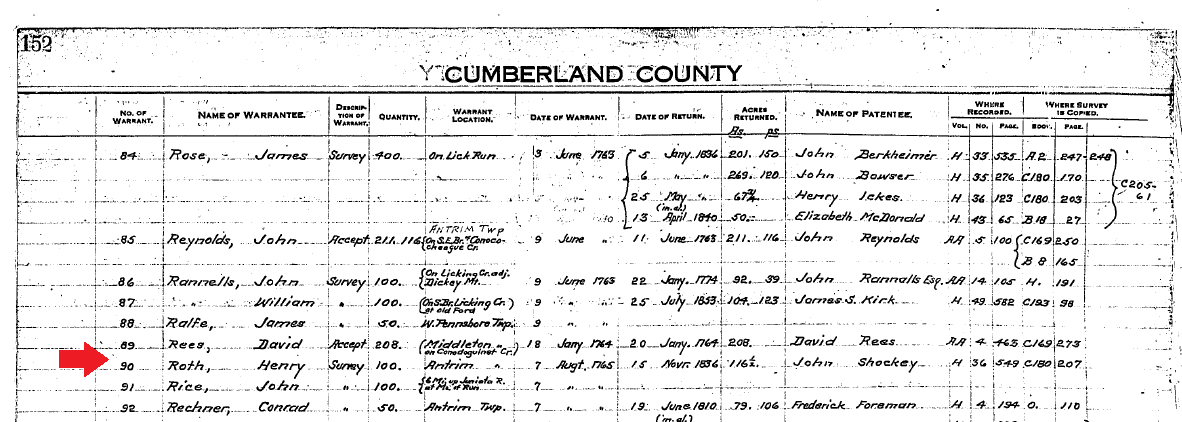 152
CUMBERLAND COUNTY
NO. OF WARRANT. NAME OF WARRANTEE. DESCRIPTION OF WARRANT. QUANTITY. WARRANT LOCATION. DATE OF WARRANT. DATE OF RETURN. ACRES RETURNED. NAME OF PATENTEE. WHERE RECORDED. WHERE SURVEY IS COPIED.
As. ps. VOL. NO. PAGE. BOOK. PAGE.
84 Rose, James Survey 400. On Lick Run 3 June 1763 5 Jany. 1836 201. 150 John Berkheimer H 33 535 A2 247-248
6 " " 269. 120 John Bowser H 35 276 C180 170 C205-61
25 May " 67 Henry Ickes H 36 123 C180 203
(in.el.)
13 April 1840 50. Elizabeth McDonald H 43 65 B18 27
ANTRIM Twp
85 Reynolds, John Accept 211. 116 On S.E.Br. Conoco-cheague Cr. 9 June " 11 June 1763 211. 116 John Reynolds AA 5 100 C169 250
B8 165
86 Rannells, John Survey 100. On Licking Cr. adj. Dickey Mt. 9 June 1763 22 Jany. 1774 92. 39 John Rannalls Esq. AA 14 105 H. 191
87 " William " 100. On S.Br. Licking Cr. at old Ford 9 " " 25 July 1853 104. 123 James S. Kirk H 49 582 C193 98
88 Ralfe, James " 50. W. Pennsboro Twp. 9 " "
89 Rees, David Accept 208. (Middleton " on Conodoguinet Cr.) 18 Jany 1764 20 Jany. 1764 208. David Rees AA 4 463 C169 273
90 Roth, Henry Survey 100. Antrim " 7 Augt. 1765 15 Novr. 1836 116 John Shockey H 36 549 C180 207
91 Rice, John " 100. 6 Mi. up Juniata R. at Mo. of Run 7 " "
92 Rechner, Conrad " 50. Antrim Twp. 7 " " 19 June 1810 79. 106 Frederick Foreman H 4 194 O. 110
(in.el.)